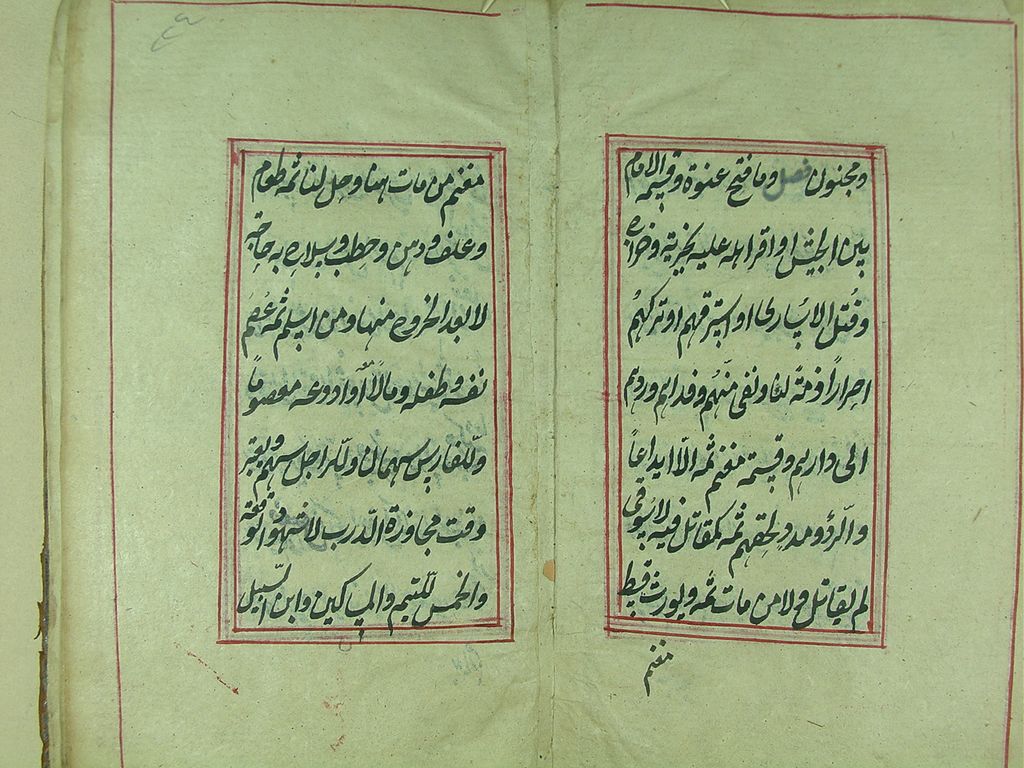 ومجنون فصل وما فتح عنوة وقسمه الامام
بين الجيش او اقر اهله عليه بجزية وخراج
وقتل الاسارى او استرقهم او تركهم
احراراً ذمة لنا ونفى منّهم وفداءهم وردهم
الى دارهم وقسمة مغنم ثمه الّا ايداعاً
والرّدء ومدد لحقهم ثمه كمقاتل فيه لا سوقى
لم يقاتل ولا من مات ثمه ويورث قسط
مغنم
مغنم من مات هنا وحل لنا ثمه طعام
وعلف ودهن وحطب وسلاح به حاجة
لا بعد الخروج منها ومن اسلم ثمه عُصَم
نفسه وطفله ومالاً او اودعه معصوماً
وللفارس سهمان وللراجل سهم ويعتبر
وقت مجاوزة الدّرب لا شهود الوقعة
والخمس لليتيم والمساكين وابن السّبيل